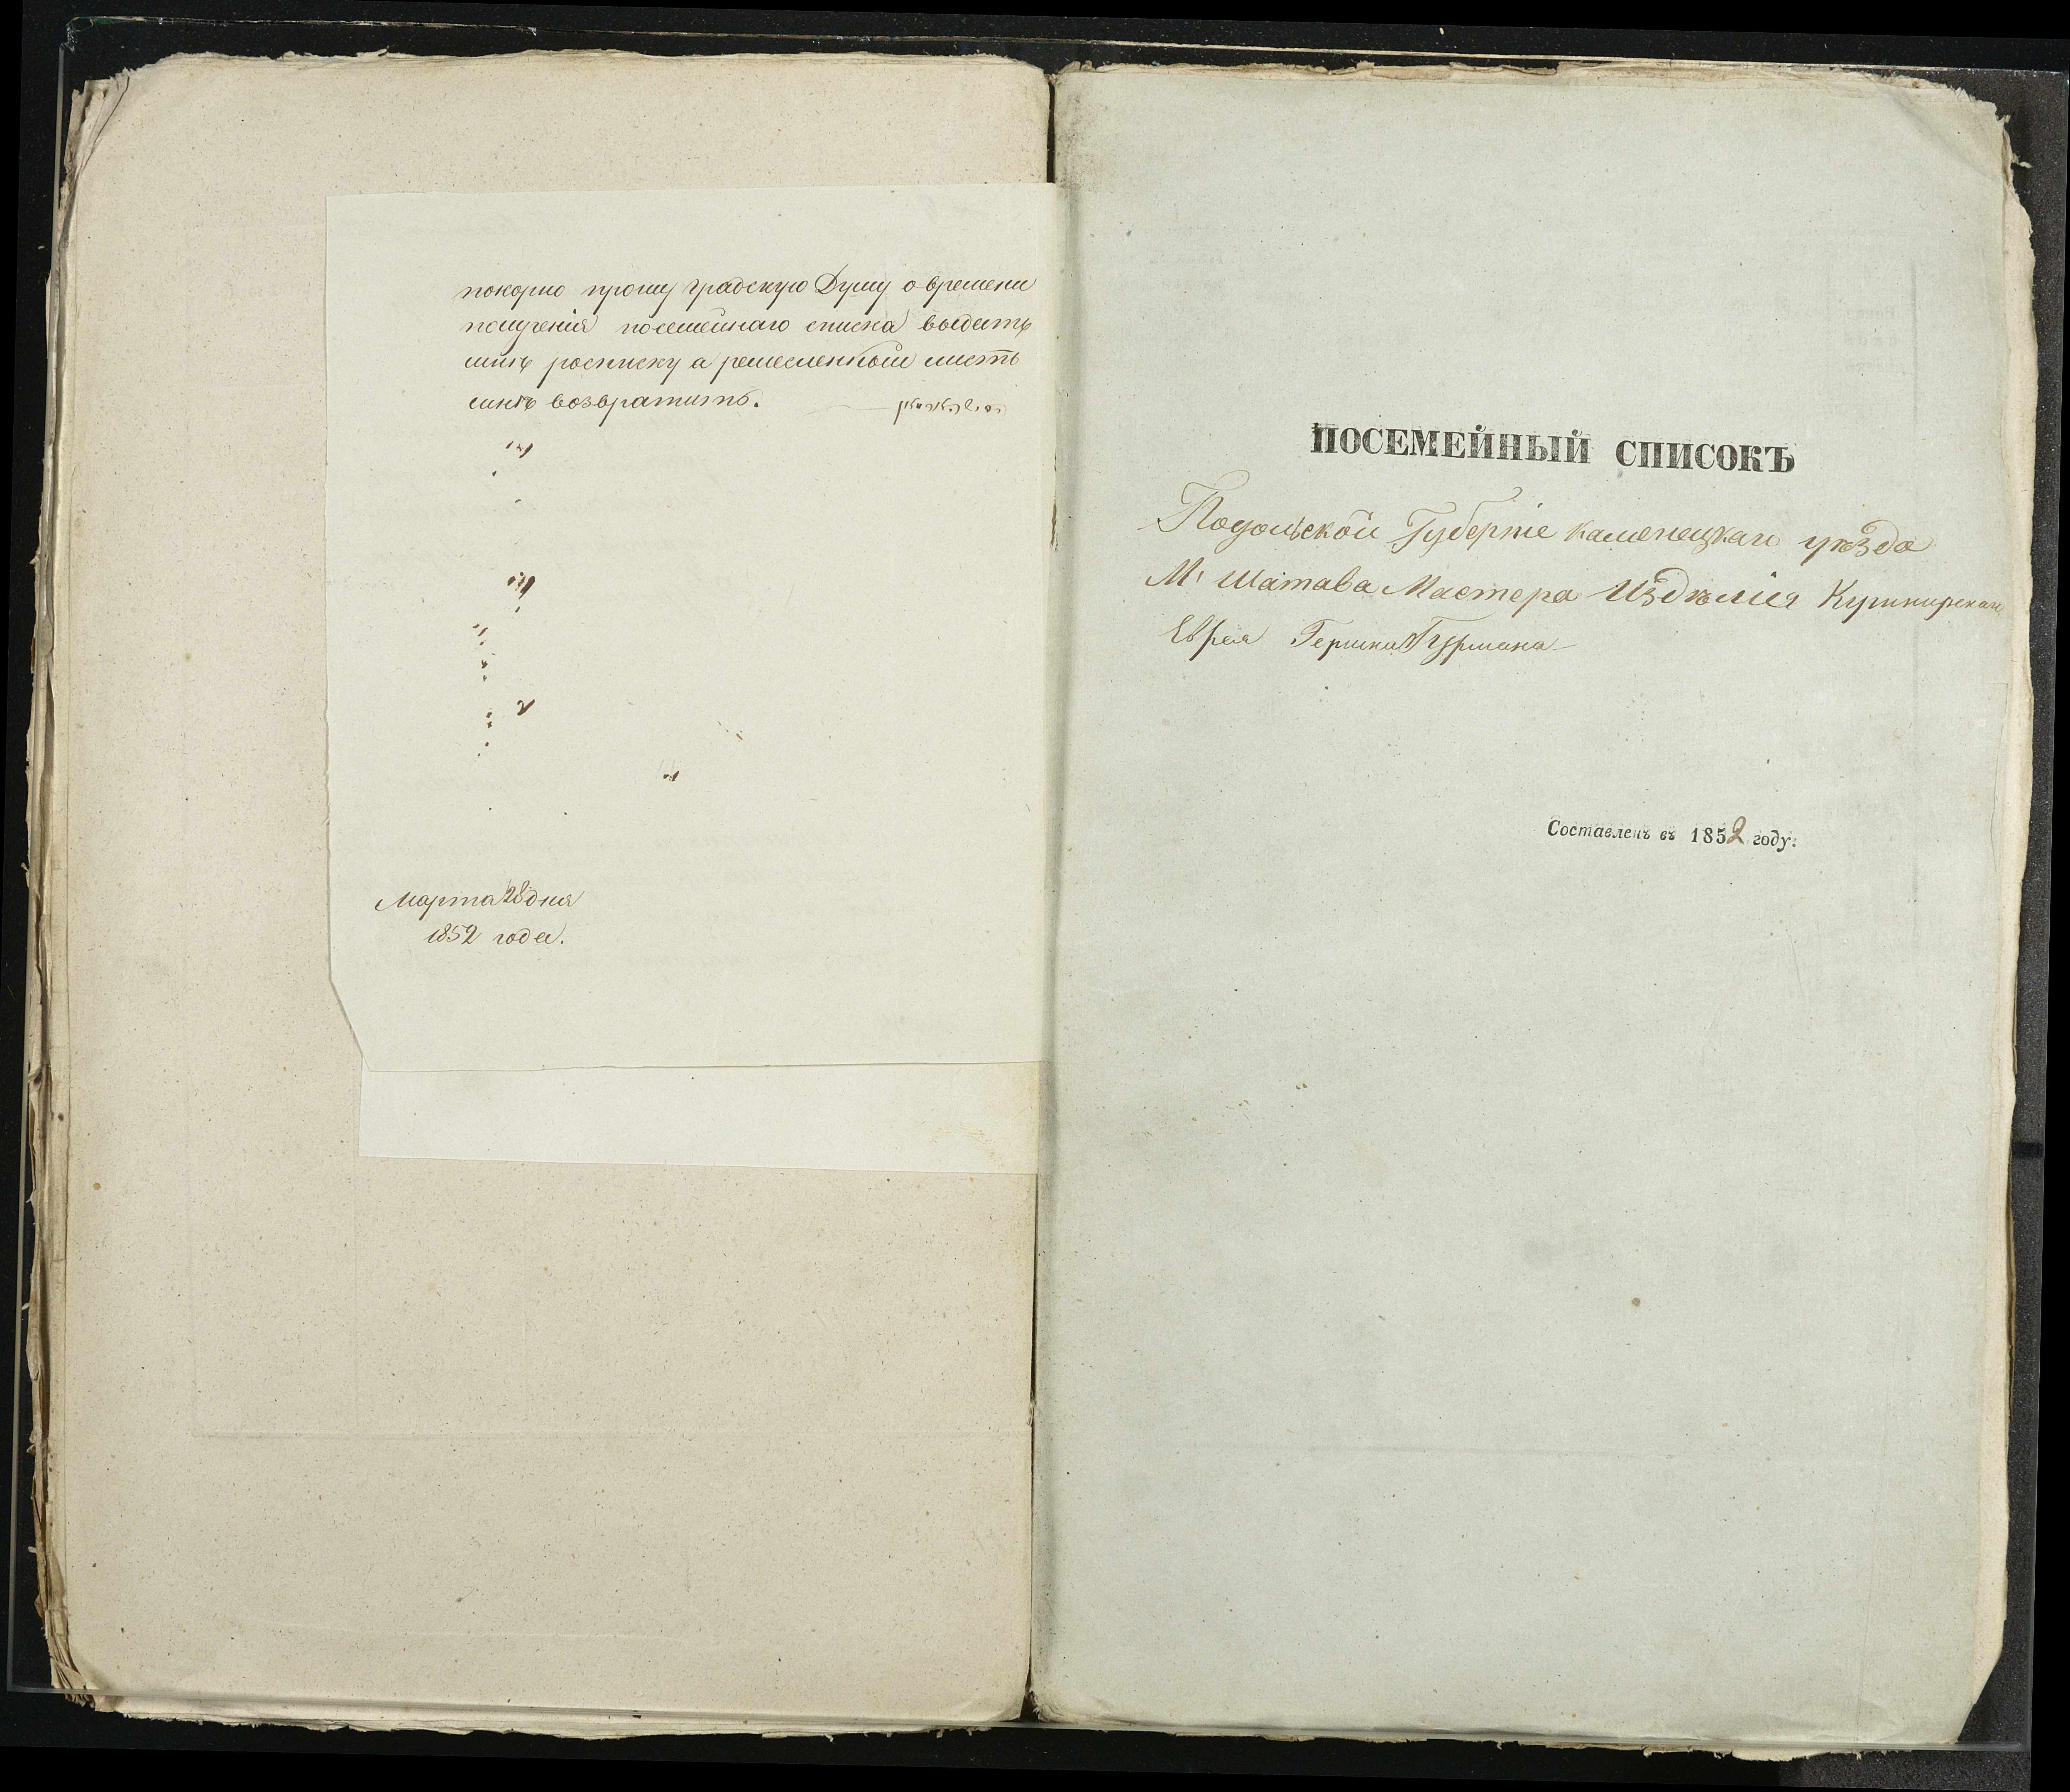 покорно прошу градскую Думу о времени
получения посемейнаго списка выдать
мнѣ росписку а ремесленный листъ
мнѣ возвратить.
Марта 28 дня
1852 года.
ПОСЕМЕЙНЫЙ СПИСОКЪ
Подольской Губерніе каменецкаго уѣзда
М. Шатава Мастера Издѣлия Кушнирскаго
Еврея Гершка Гурмана
Составленъ въ 1852 году.